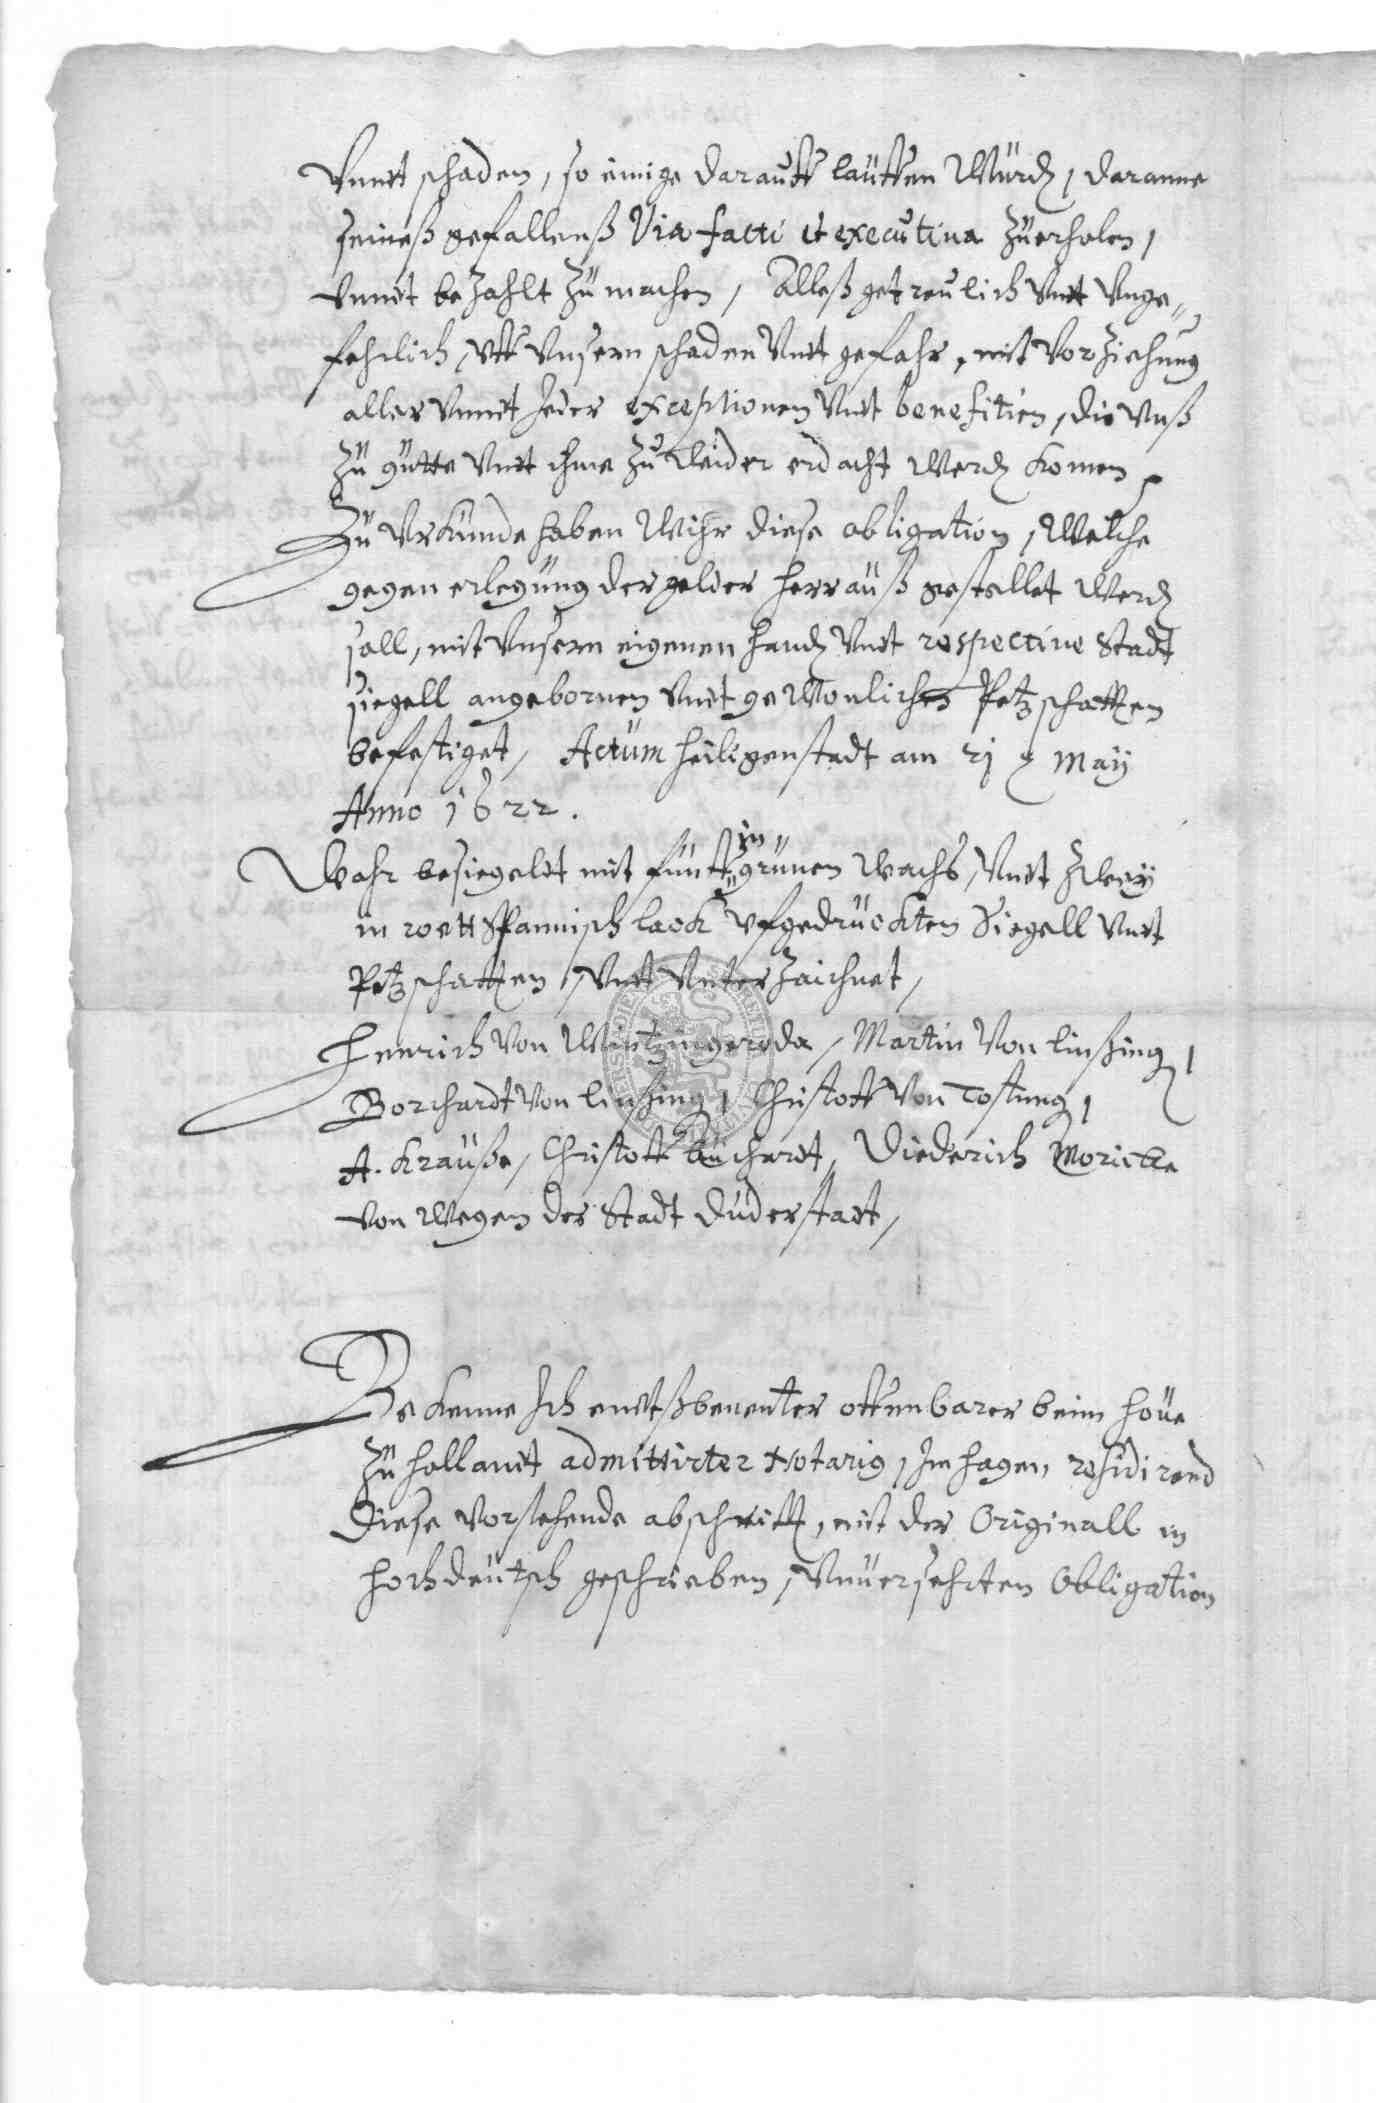 Vnnd schaden, so einige darauff lauffen Würd, daranne
seineß gefallenß Via facti et executiua zuerholen,
Vnnd bezahlt zu machen, Alleß getreulich Vnd Vnge-
fehrlich, Vff Vnsern schaden Vnd gefahr, mit Vorziehung
aller Vnnd Jeder exceptionen Vnd benefitien, die Vnß
zu gutte Vnd ihme zu Weider erdacht Werd komen
Zu Vrkunde haben Wihr diese obligation, Welche
gegen erlegung der gelder herrauß gestellet Werd
soll, mit Vnsern eigenen hand Vnd respectiue Stadt
siegell angebornen Vnd geWonlichen Petzschafften
befestiget, Actum heiligenstadt am 21 May
Anno 1622.
Wahr besiegeldt mit funff in grünen Wachs, Vnd Zwey
in rott Spannisch lack vfgedruckten Siegell Vnd
Petzschafften, Vnd Vnterzeichnet,
Henrich Von Wintzingeroda, Martin Von linsing,
Borchardt Von linsing, Christoff Von Tostung,
A. Krauße, Christoff Buchardt, Diederich Moricke
Von Wegen der Stadt Duderstadt,
Bekenne Ich endtßbenenter offenbarer beim houe
zu hollandt admittirter Notarius, Im hagen, residirend
Diese Vorstehende abschrifft, mit der Originall in
hochdeutsch geschrieben, Vnuersehrten Obligation